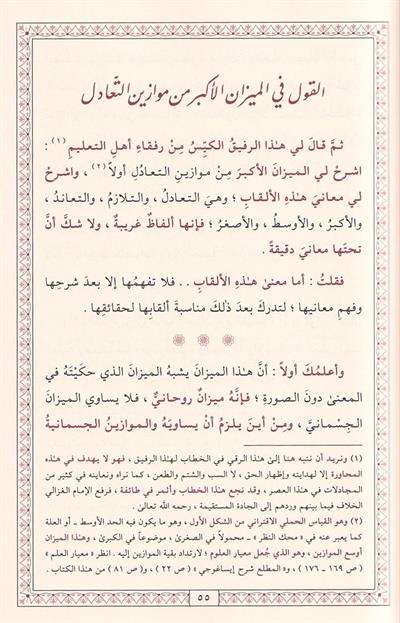 القول في الميزان الأكبر من موازين التعادل
ثمَّ قالَ لي هـٰذا الرفيقُ الكيِّسُ مِنْ رفقاءِ أهلِ التعليمِ (١) :
اشرحْ لي الميزانَ الأكبرَ مِنْ موازينِ التعادُلِ أولاً (٢) ، واشرحْ
لي معانيَ هـٰذهِ الألقابِ ؛ وهيَ التعادلُ ، والتلازمُ ، والتعاندُ ،
والأكبرُ ، والأوسطُ ، والأصغرُ ؛ فإنها ألفاظٌ غريبةٌ ، ولا شكَّ أنَّ
تحتَها معانيَ دقيقةً .
فقلتُ : أما معنىٰ هـٰذهِ الألقابِ . . فلا تفهمُها إلا بعدَ شرحِها
وفهمِ معانيها ؛ لتدركَ بعدَ ذٰلكَ مناسبةَ ألقابِها لحقائقِها .
وأعلمُكَ أولاً : أنَّ هـٰذا الميزانَ يشبهُ الميزانَ الذي حكَيْتَهُ في
المعنىٰ دونَ الصورةِ ؛ فإنَّهُ ميزانٌ روحانيٌّ ، فلا يساوي الميزانَ
الجِسْمانيَّ ، ومِنْ أينَ يلزمُ أنْ يساويَهُ والموازينُ الجسمانيةُ
(١) ونريد أن ننبه هنا إلىٰ هـٰذا الرقي في الخطاب لهـٰذا الرفيق ، فهو لا يهدف في هـٰذه
المحاورة إلا لهدايته وإظهار الحق ، لا السب والشتم والطعن ، كما نراه ونعاينه في كثير من
المجادلات في هـٰذا العصر ، وقد نجع هـٰذا الخطاب وأثمر في طائفة ، فرفع الإمام الغزالي
الخلاف فيما بينهم وردهم إلى الجادة المستقيمة ، رحمه الله تعالىٰ .
(٢) وهو القياس الحملي الاقتراني من الشكل الأول ، وهو ما يكون فيه الحد الأوسط ـ أو العلة
كما يعبر عنه في « محك النظر » ـ محمولاً في الصغرىٰ ، موضوعاً في الكبرىٰ ، وهـٰذا الميزان
أوسع الموازين ، وهو الذي جُعل معيار العلوم ؛ لارتداد بقية الموازين إليه . انظر « معيار العلم »
( ص ١٦٩ ـ ١٧٦ ) ، و« المطلع شرح إيساغوجي » ( ص ٢٢ ) ، و( ص ٨١ ) من هـٰذا الكتاب .
٥٥